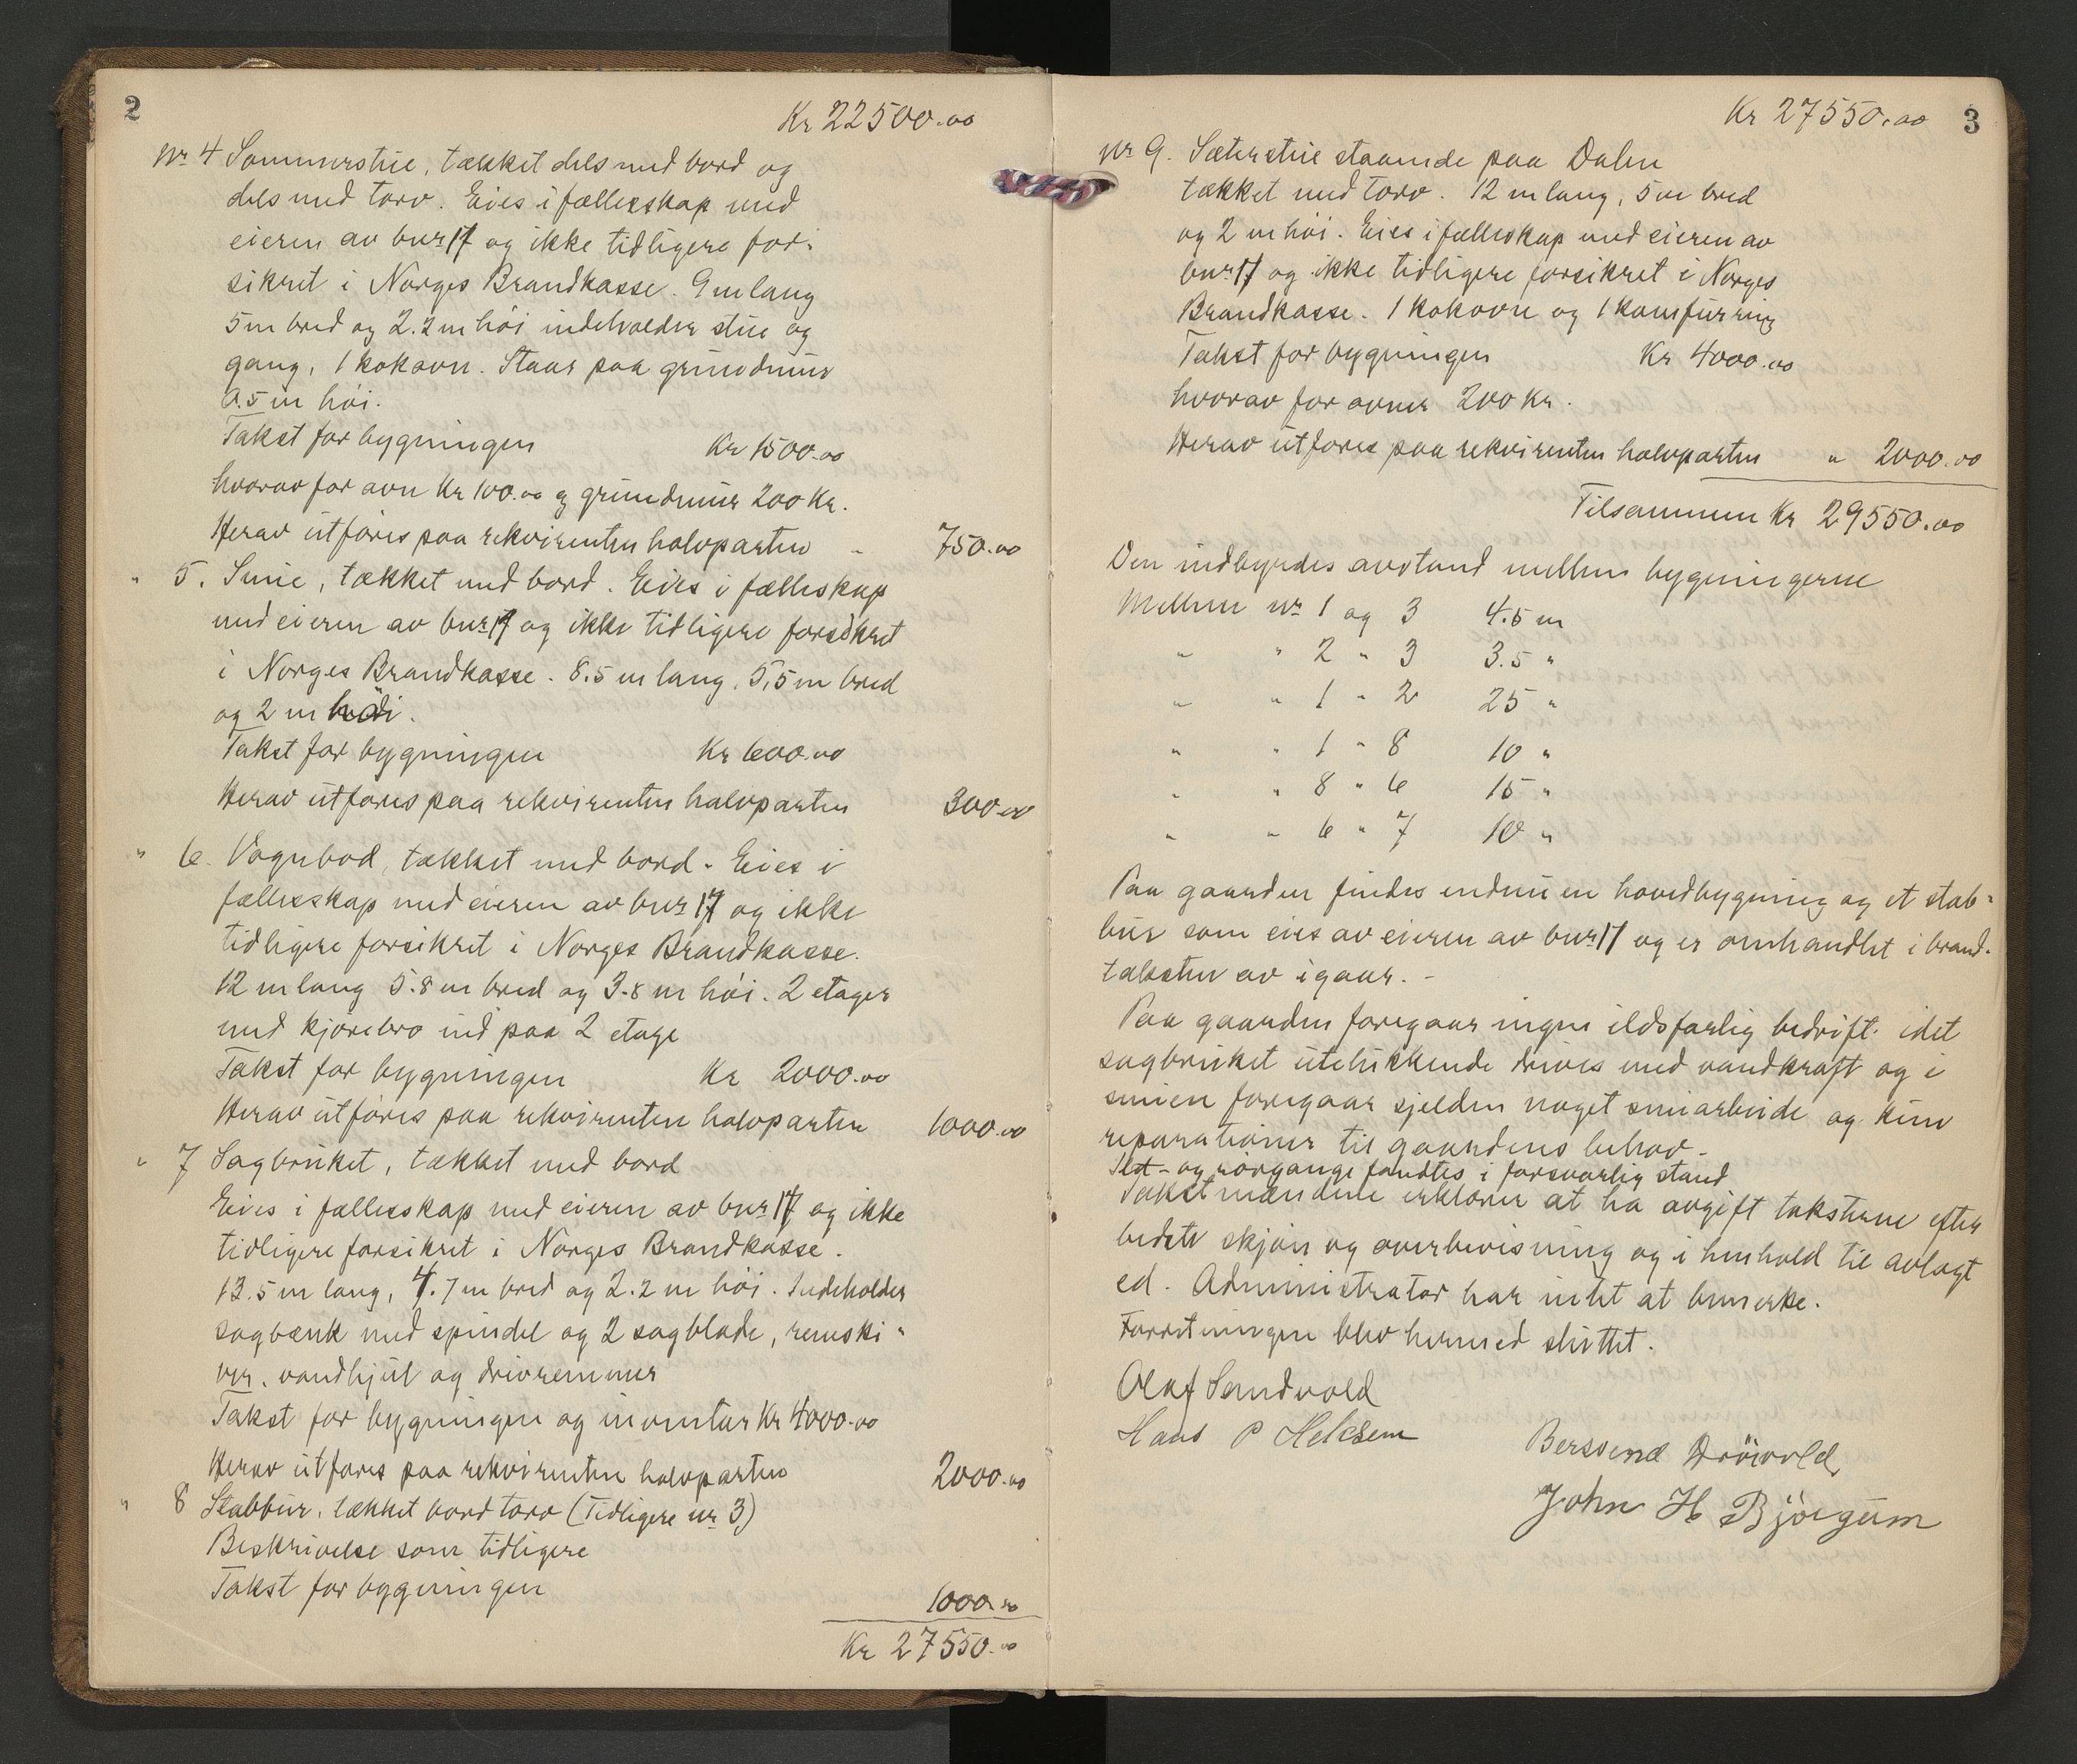 2
Kr 22500.00
Nr 4 Sommerstue, tækket dels med bord og
dels med torv. Eies i fællesskap med
eieren av bnr 17 og ikke tidligere for-
sikret i Norges Brandkasse. 9 m lang
5 m bred og 2.2 m høi indeholder stue og
gang, 1 kokovn. Staar paa grundmur
0.5 m høi.
Takst for bygningen Kr 1500.00
hvorav for ovn Kr 100.00 og grundmur 200 Kr.
Herav utføres paa rekvirenten halvparten " 750.00
" 5. Smie, tækket med bord. Eies i fælleskap
med eieren av bnr 17 og ikke tidligere forsikret
i Norges Brandkasse. 8.5 m lang, 5,5 m bred
og 2 m høi.
Takst for bygningen Kr 600.00
Herav utføres paa rekvirenten halvparten 300.00
" 6. Vognbod, tækket med bord. Eies i
fællesskap med eieren av bnr 17 og ikke
tidligere forsikret i Norges Brandkasse.
12 m lang 5.8 m bred og 3.8 m høi. 2 etager
med kjørebro ind paa 2 etage
Takst for bygningen Kr 2000.00
Herav utføres paa rekvirenten halvparten 1000.00
" 7 Sagbruket, tækket med bord
Eies i fællesskap med eieren av bnr 17 og ikke
tidligere forsikret i Norges Brandkasse.
13.5 m lang, 4.7 m bred og 2.2 m høi. Indeholder
sagbænk med spindel og 2 sagblade, remski-
ver, vandhjul og drivremmer
Takst for bygningen og inventar Kr 4000.00
Herav utføres paa rekvirenten halvparten 2000.00
" 8 Stabbur, tækket bord torv (Tidligere nr 3)
Beskrivelse som tidligere
Takst for bygningen
1000.00
Kr 27550.00
Kr 27550.00 3
Nr 9. Sæterstue staaende paa Dalen
tækket med torv. 12 m lang, 5 m bred
og 2 m høi. Eies i fælleskap med eieren av
bnr 17 og ikke tidligere forsikret i Norges
Brandkasse. 1 kokovn og 1 komfurring
Takst for bygningen Kr 4000.00
hvorav for ovner 200 Kr.
Herav utføres paa rekvirenten halvparten " 2000.00
Tilsammen Kr 29550.00
Den indbyrdes avstand mellem bygningerne
Mellem nr 1 og 3 4.5 m
" " 2 " 3 3.5 "
" " 1 " 2 25 "
" " 1 " 8 10 "
" " 8 " 6 15 "
" " 6 " 7 10 "
Paa gaarden findes endnu en hovedbygning og et stab-
bur som eies av eieren av bnr 17 og er omhandlet i brand-
taksten av igaar. -
Paa gaarden foregaar ingen ildsfarlig bedrift. idet
sagbruket utelukkende drives med vandkraft og i
smien foregaar sjelden noget smiarbeide og kun
reparationer til gaardens behov -
Ild- og rörgange fandtes i forsvarlig stand
Takstmændene erklærer at ha avgit taksterne efter
bedste skjøn og overbevisning og i henhold til avlagt
ed. Administrator har intet at bemerke.
Forretningen blev hermed sluttet.
Olaf Sandvold
Hans P Helesem
Berssend Dröivold
John H Bjørgum